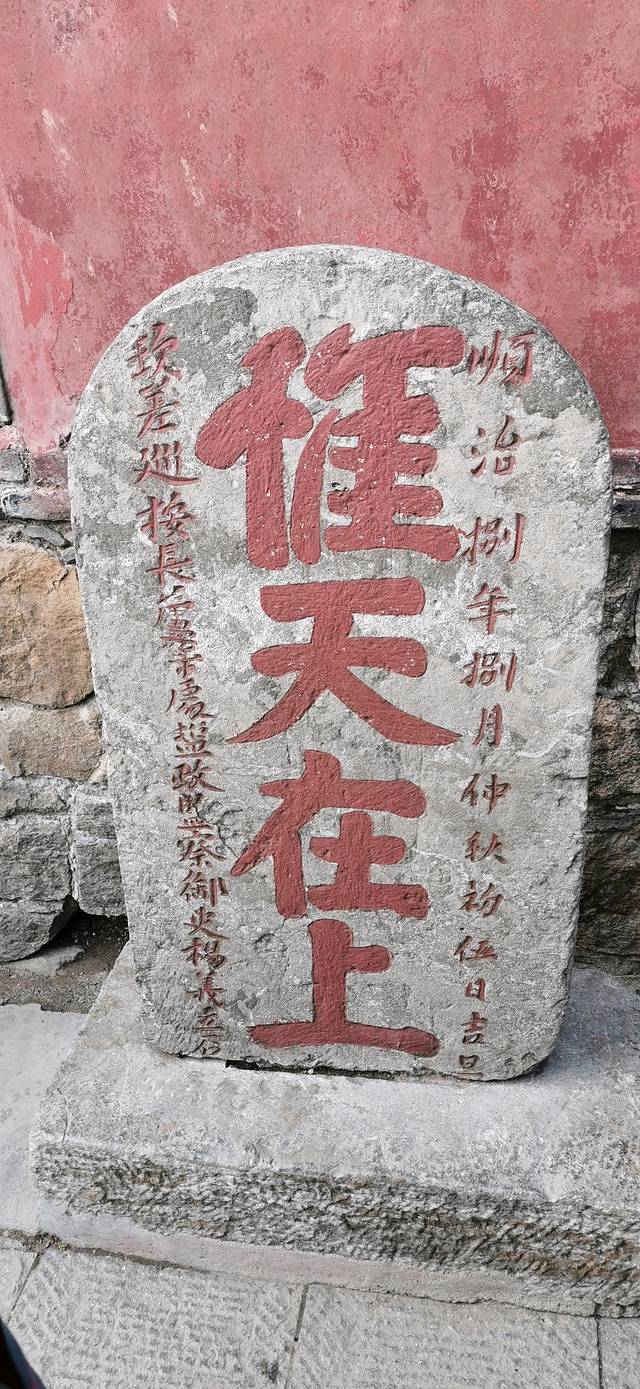 順治捌年捌月仲秋初伍日吉旦
惟天在上
欽差巡按長蘆等處鹽政監察御史楊義立石